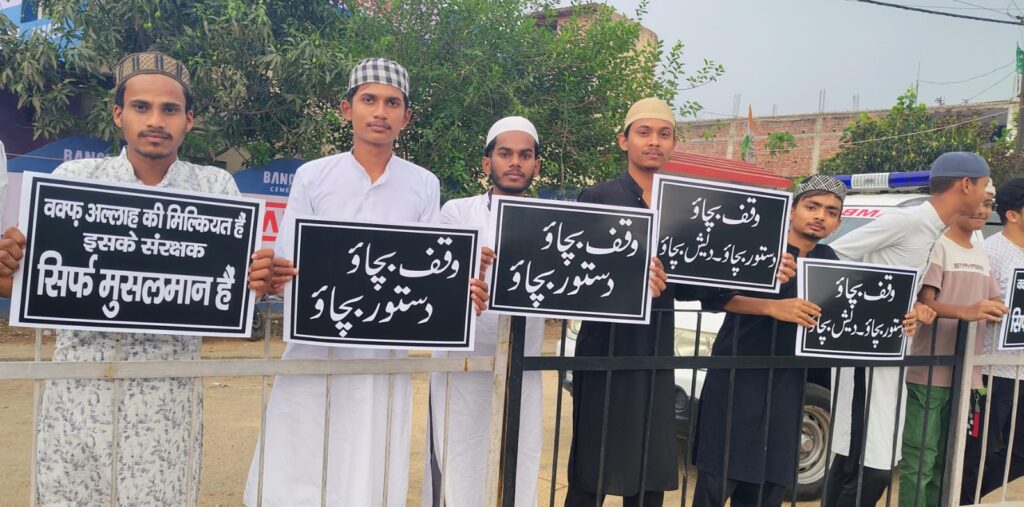 वक्फ़ अल्लाह की मिल्कियत है
इसके संरक्षक
सिर्फ मुसलमान हैं
وقف بچاؤ
دستور بچاؤ
وقف بچاؤ
دستور بچاؤ
وقف بچاؤ
دستور بچاؤ ۔ دیش بچاؤ
وقف بچاؤ
دستور بچاؤ ۔ دیش بچاؤ
BANG
CEMENT
STAY